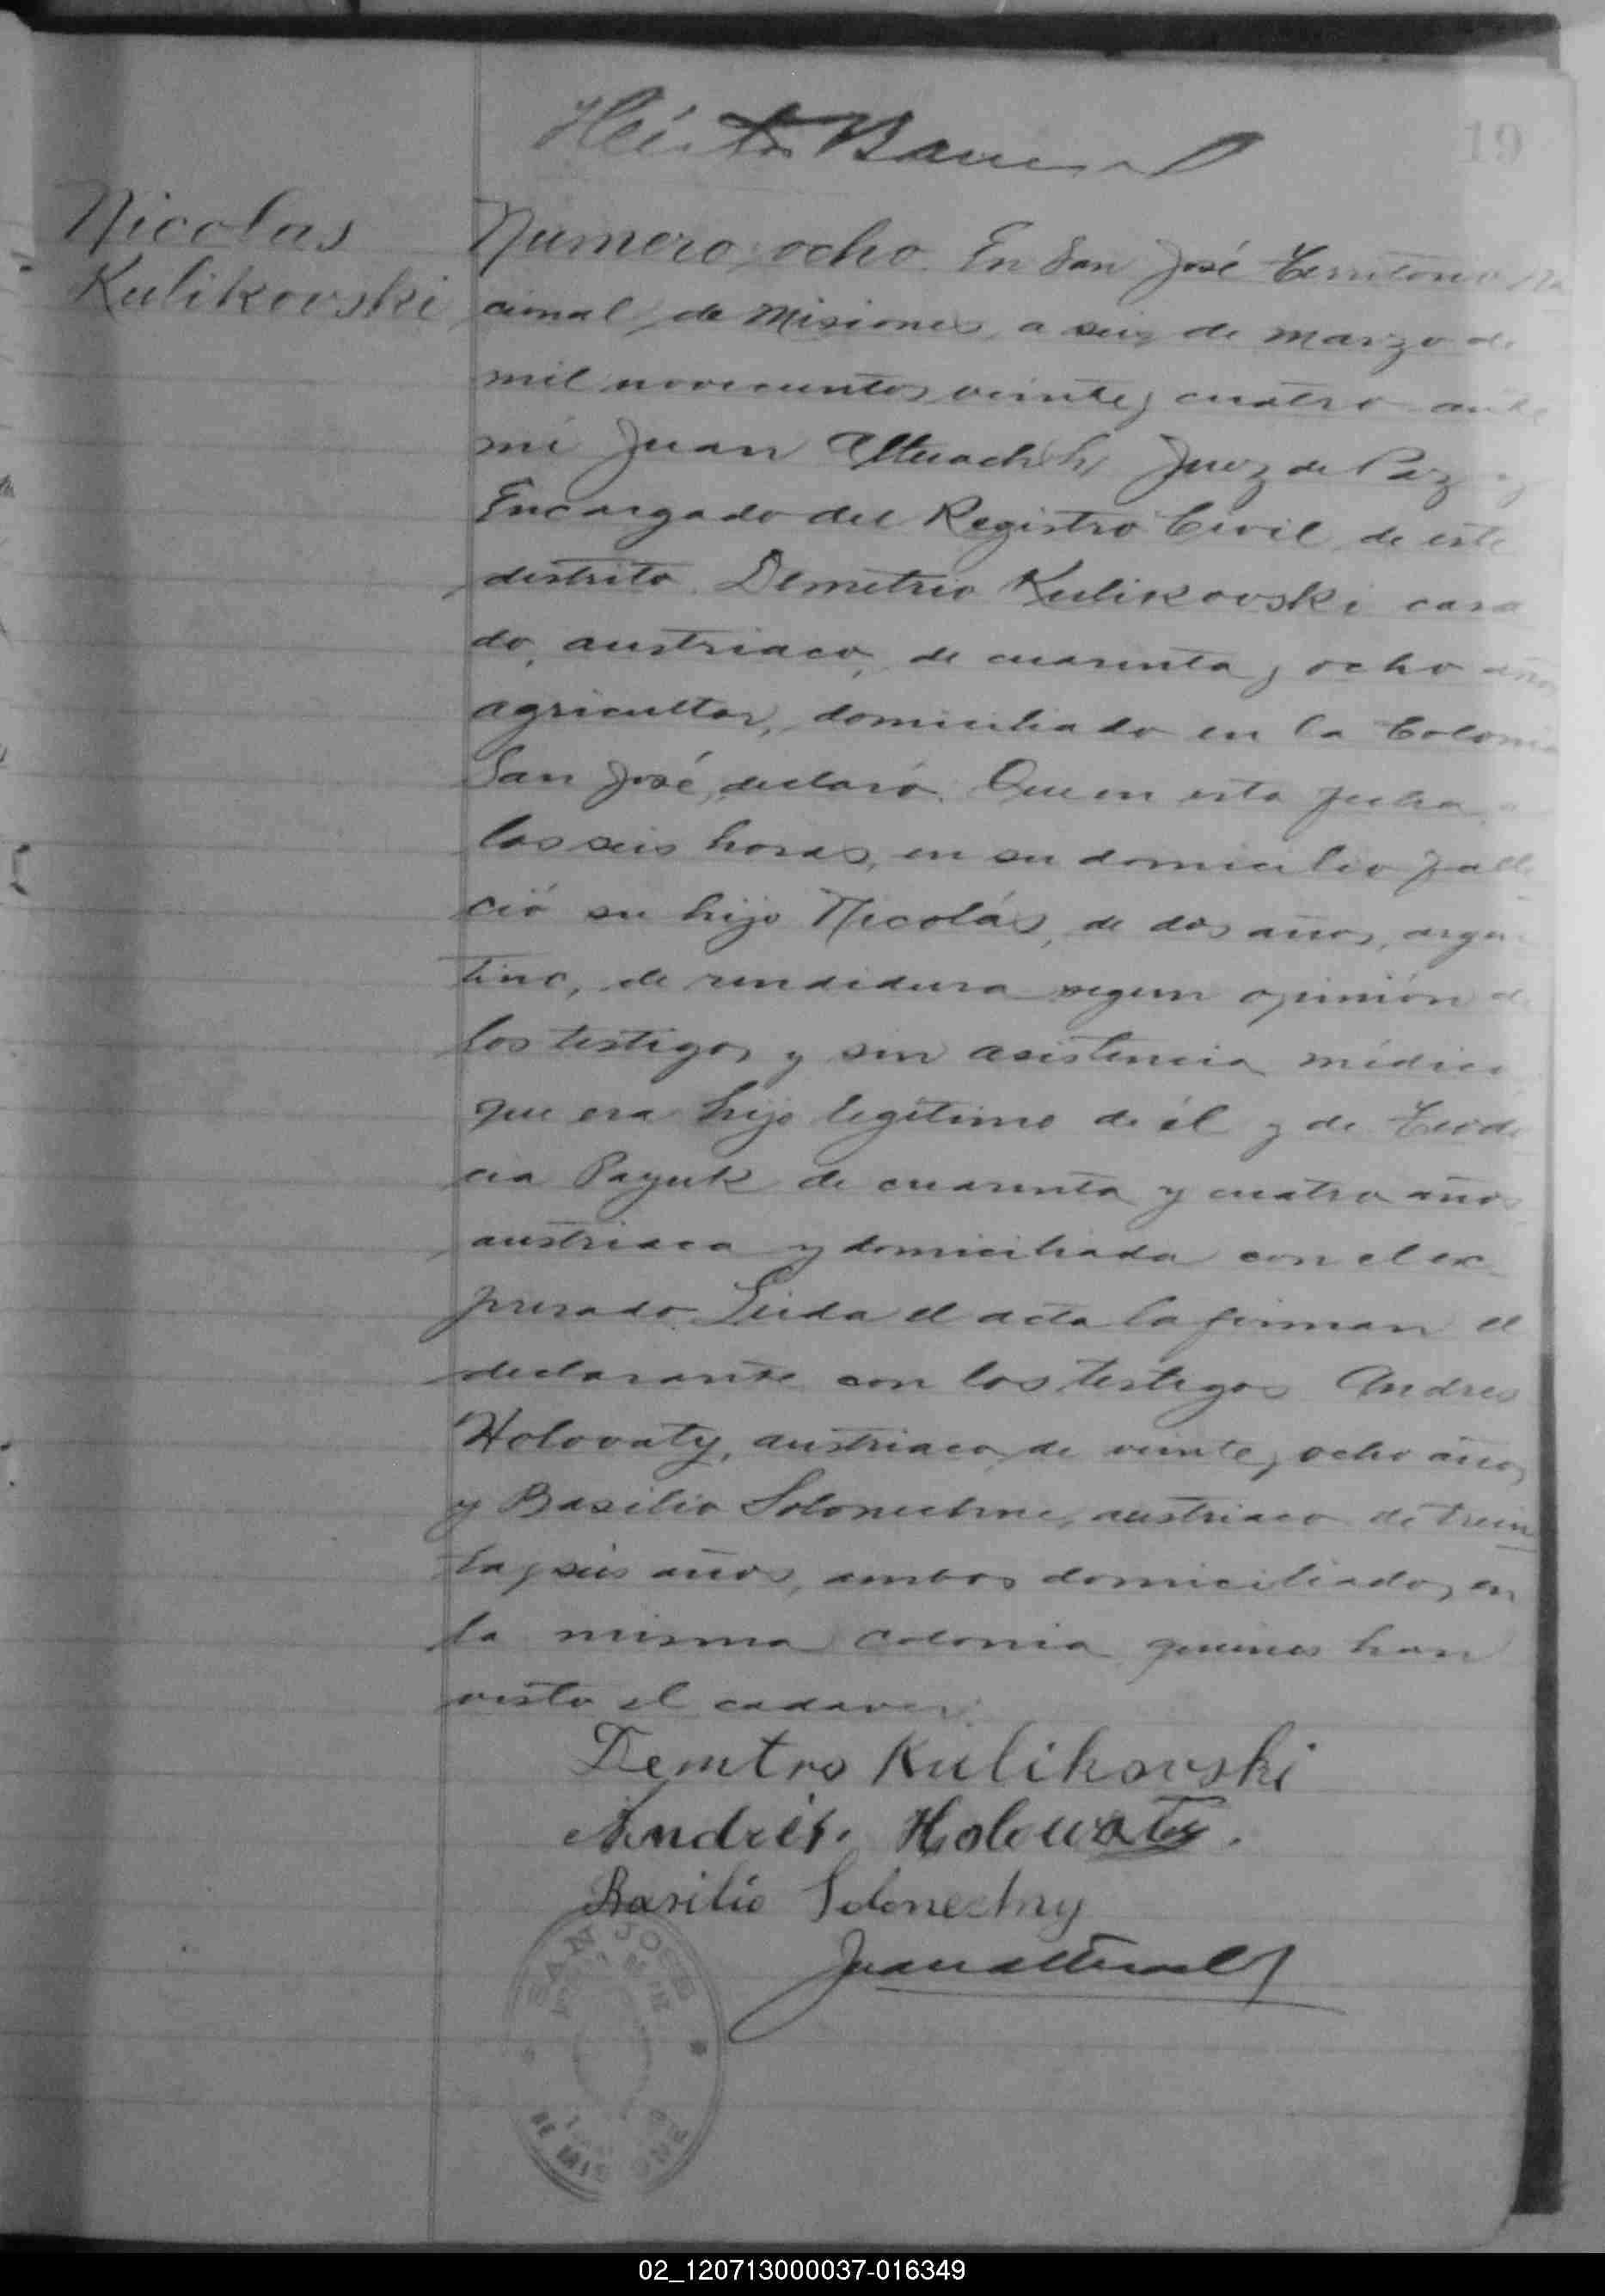 19
Nicolas
Kulikovski
Numero ocho. En San José Territorio Na
cional de Misiones, a seis de marzo de
mil novecientos veinte y cuatro ante
mi Juan Juez de Paz y
Encargado del Registro Civil de este
distrito. Demetrio Kulikovski casa
do, austriaco, de cuarenta y ocho años
agricultor, domiciliado en la Colonia
San José, declaró: Que en esta fecha a
las seis horas, en su domicilio falle
ció su hijo Nicolás, de dos años, argen
tino, de rendidura segun opinión de
los testigos y sin asistencia médica
que era hijo legítimo de él y de Teodo
cia Payuk de cuarenta y cuatro años
austriaca y domiciliada con el ex-
presado. Leida el acta la firman el
declarante con los testigos Andres
Holovaty, austriaco de veinte y ocho años
y Basilio austriaco de trein
ta y seis años, ambos domiciliados en
la misma colonia quienes han
visto el cadaver.
Demtro Kulikovski
Andrés. Holowaty.
Basilio Solonechny
SAN JOSE
DE MISIONES
02_120713000037-016349